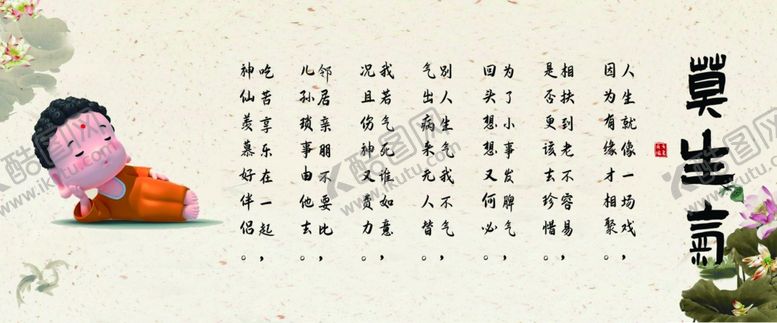 莫生氣
人生就像一场戏，
因为有缘才相聚。
相扶到老不容易，
是否更该去珍惜。
为了小事发脾气，
回头想想又何必。
别人生气我不气，
气出病来无人替。
我若气死谁如意，
况且伤神又费力。
邻居亲朋不要比，
儿孙琐事由他去。
吃苦享乐在一起，
神仙羡慕好伴侣。
酷图网
www.ikutu.com